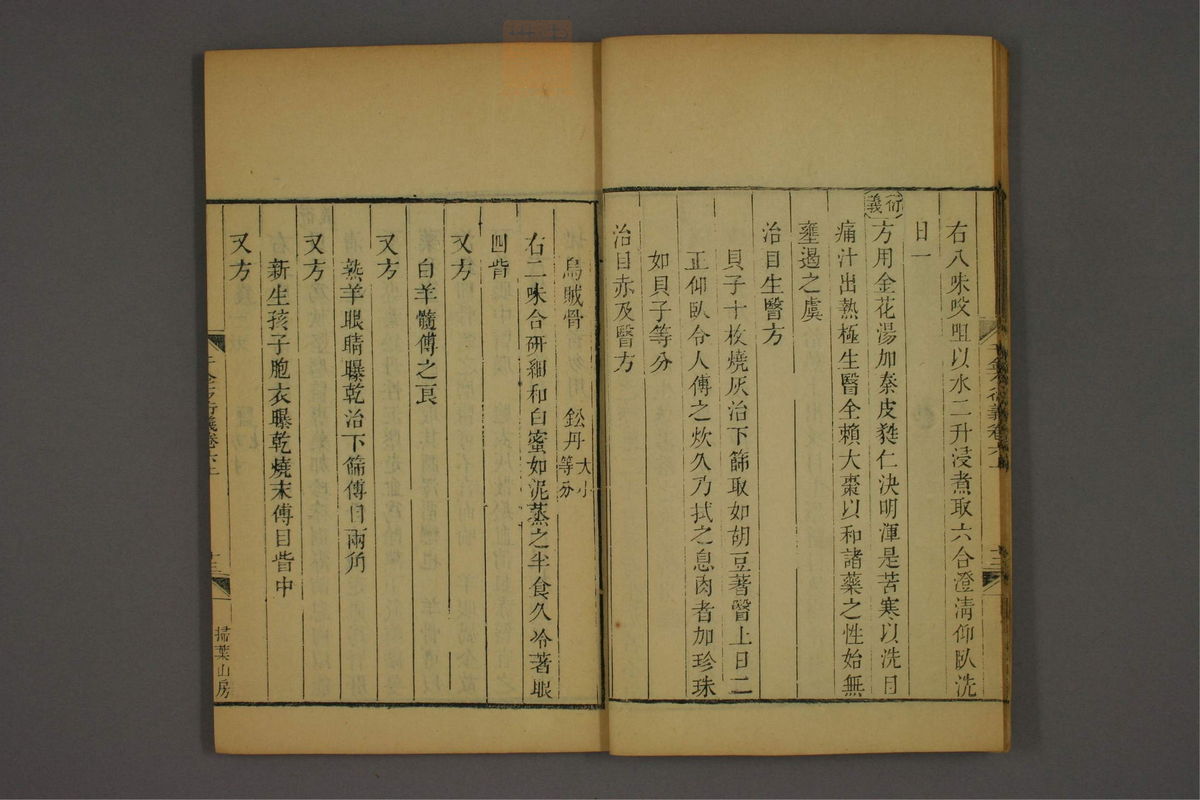 右八味㕮咀以水二升浸煮取六合澄清仰臥洗
日一
衍義
方用金花湯加秦皮蕤仁決明渾是苦寒以洗目
痛汁出熱極生瞖全賴大棗以和諸藥之性始無
壅遏之虞
治目生瞖方
貝子十枚燒灰治下篩取如胡豆著瞖上日二
正仰臥令人傅之炊久乃拭之息肉者加珍珠
如貝子等分
治目赤及瞖方
烏賊骨 鉛丹大小等分
右二味合研細和白蜜如泥蒸之半食久冷著眼
四眥
又方
白羊髓傅之良
又方
熟羊眼睛曝乾治下篩傅目兩角
又方
新生孩子胞衣曝乾燒末傅目眥中
又方
千金方衍義卷六上
十三
掃葉山房